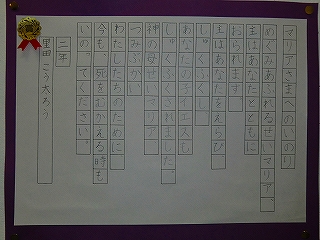 マリアさまへのいのり
めぐみあふれるせいマリア、
主はあなたとともに
おられます。
主はあなたをえらび
しゅくふくし、
あなたの子イエスも
しゅくふくされました。
神の母せいマリア、
つみぶかい
わたしたちのために
今も、死をむかえる時も
いのってください。
二年
里田こう太ろう